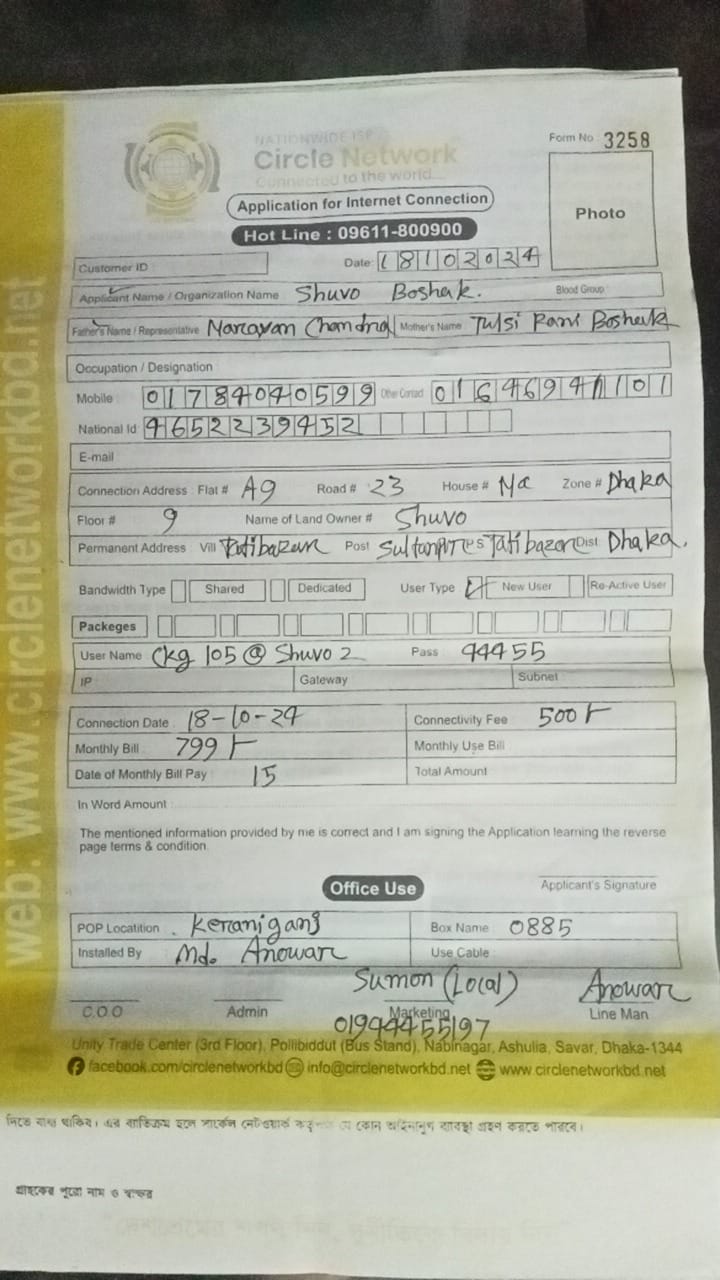 NATIONWIDE ISP
Form No 3258
Circle Network
Connected to the world...
Application for Internet Connection
Photo
Hot Line : 09611-800900
Customer ID
Date: 18102024
Applicant Name / Organization Name Shuvo Boshak. Blood Group
Father's Name / Representative Narayan Chandra Mother's Name Tulsi Rani Boshak
Occupation / Designation
Mobile 01784040599 Other Contact 01646941101
National Id 4652239452
E-mail
Connection Address : Flat # A9 Road # 23 House # Na Zone # Dhaka
Floor # 9 Name of Land Owner # Shuvo
Permanent Address Vill Tatibazar Post PS Tatibazar Dist: Dhaka.
Bandwidth Type Shared Dedicated User Type New User Re-Active User
Packeges
User Name Ckg 105 @ Shuvo 2 Pass 44455
IP Gateway Subnet
Connection Date 18-10-24 Connectivity Fee 500/-
Monthly Bill 799/- Monthly Use Bill
Date of Monthly Bill Pay 15 Total Amount
In Word Amount
The mentioned information provided by me is correct and I am signing the Application learning the reverse
page terms & condition.
Office Use
Applicant's Signature
POP Locatition . Keranigang Box Name 0885
Installed By Md. Anowar Use Cable
Sumon (Local) Anowar
C.O.O Admin Marketing Line Man
01944455197
Unity Trade Center (3rd Floor), Pollibiddut (Bus Stand), Nabinagar, Ashulia, Savar, Dhaka-1344
facebook.com/circlenetworkbd info@circlenetworkbd.net www.circlenetworkbd.net
web: www.circlenetworkbd.net
দিতে বাধ্য থাকিব। এর ব্যতিক্রম হলে সার্কেল নেটওয়ার্ক কর্তৃপক্ষ যে কোন আইনানুগ ব্যবস্থা গ্রহণ করতে পারবে।
গ্রাহকের পুরো নাম ও স্বাক্ষর